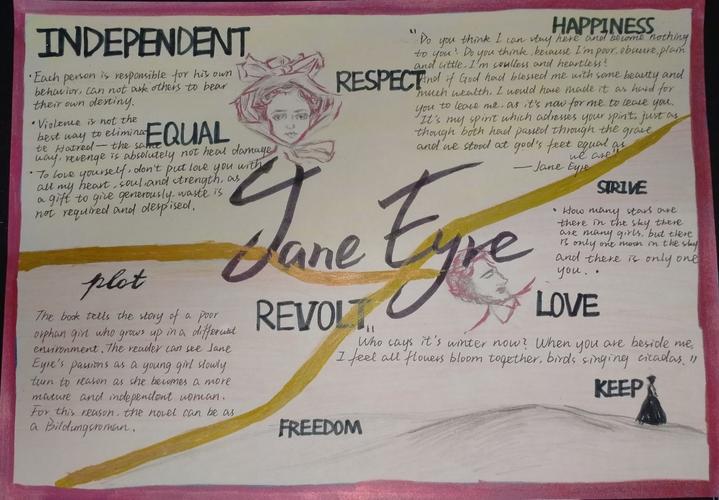 INDEPENDENT
· Each person is responsible for his own
behavior, can not ask others to bear
their own destiny.
· Violence is not the
best way to elimina
te Hatred — the same
way, revenge is absolutely not heal damage
· To love yourself, don't put love you with
all my heart, soul and strength, as
a gift to give generously, waste is
not required and despised.
EQUAL
RESPECT
HAPPINESS
"Do you think I can stay here and become nothing
to you? Do you think, because I'm poor, obscure, plain
and little, I'm soulless and heartless?
And if God had blessed me with some beauty and
much wealth, I would have made it as hard for
you to leave me, as it's now for me to leave you.
It's my spirit which adresses your spirit, just as
though both had passed through the grave
and we stood at god's feet equal as
we are"
— Jane Eyre
STRIVE
· How many stars are
there in the sky there
are many girls, but there
is only one moon in the sky
and there is only one
you. .
Jane Eyre
plot
The book tells the story of a poor
orphan girl who grows up in a different
environment. The reader can see Jane
Eyre's passions as a young girl slowly
turn to reason as she becomes a more
mature and independent woman.
For this reason, the novel can be as
a Bildungsroman.
REVOLT
LOVE
"Who says it's winter now? When you are beside me,
I feel all flowers bloom together, birds singing cicadas."
KEEP
FREEDOM